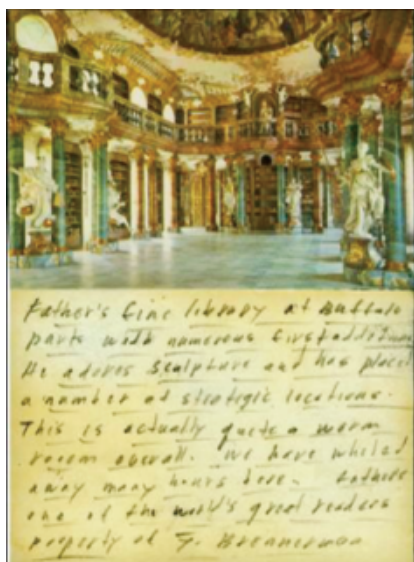 Father's fine library at Buffalo
parts with numerous first additions
He adores sculpture and has placed
a number at strategic locations.
This is actually quite a warm
room overall. We have whiled
away many hours here. Fathers
one of the world's great readers
property of F. Brennerman